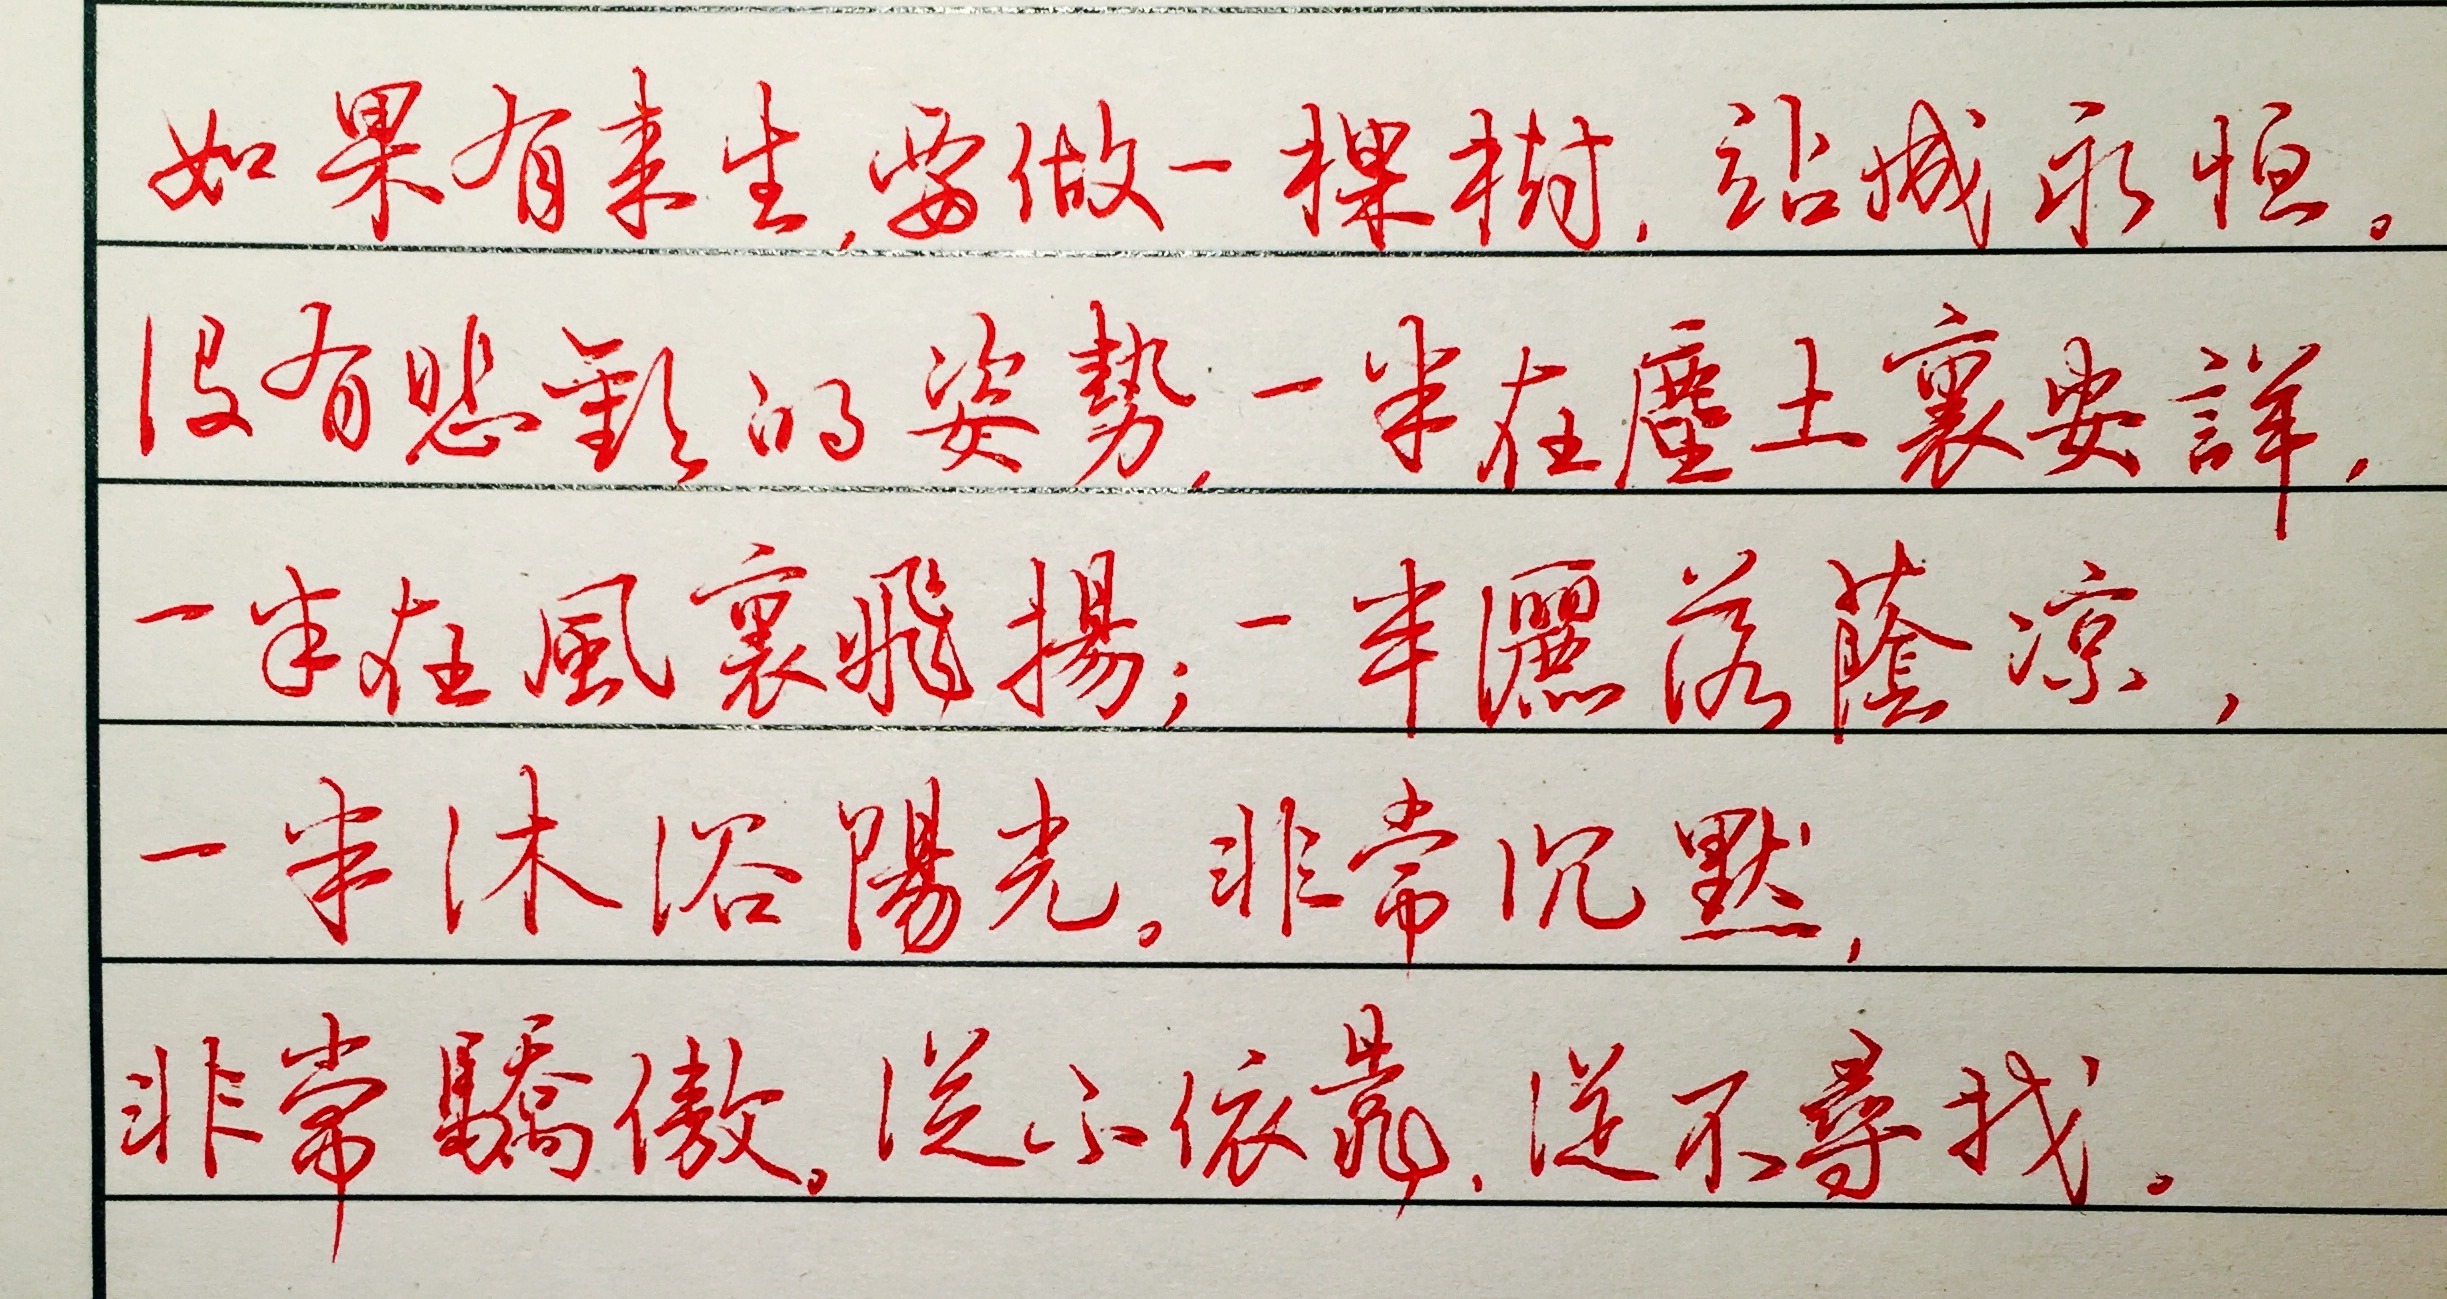 如果有来生,要做一棵樹,站成永恒。
没有悲歡的姿勢,一半在塵土裏安詳,
一半在風裏飛揚;一半灑落蔭凉,
一半沐浴陽光。非常沉默,
非常驕傲。從不依靠,從不尋找。